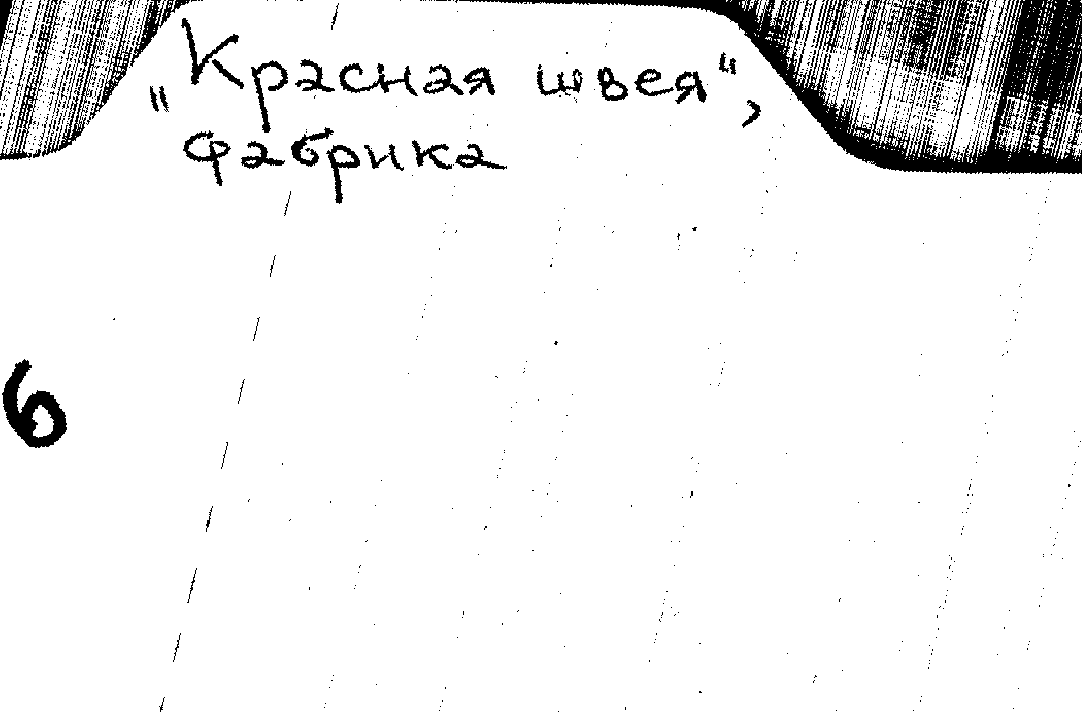 „Красная швея“,
фабрика
6